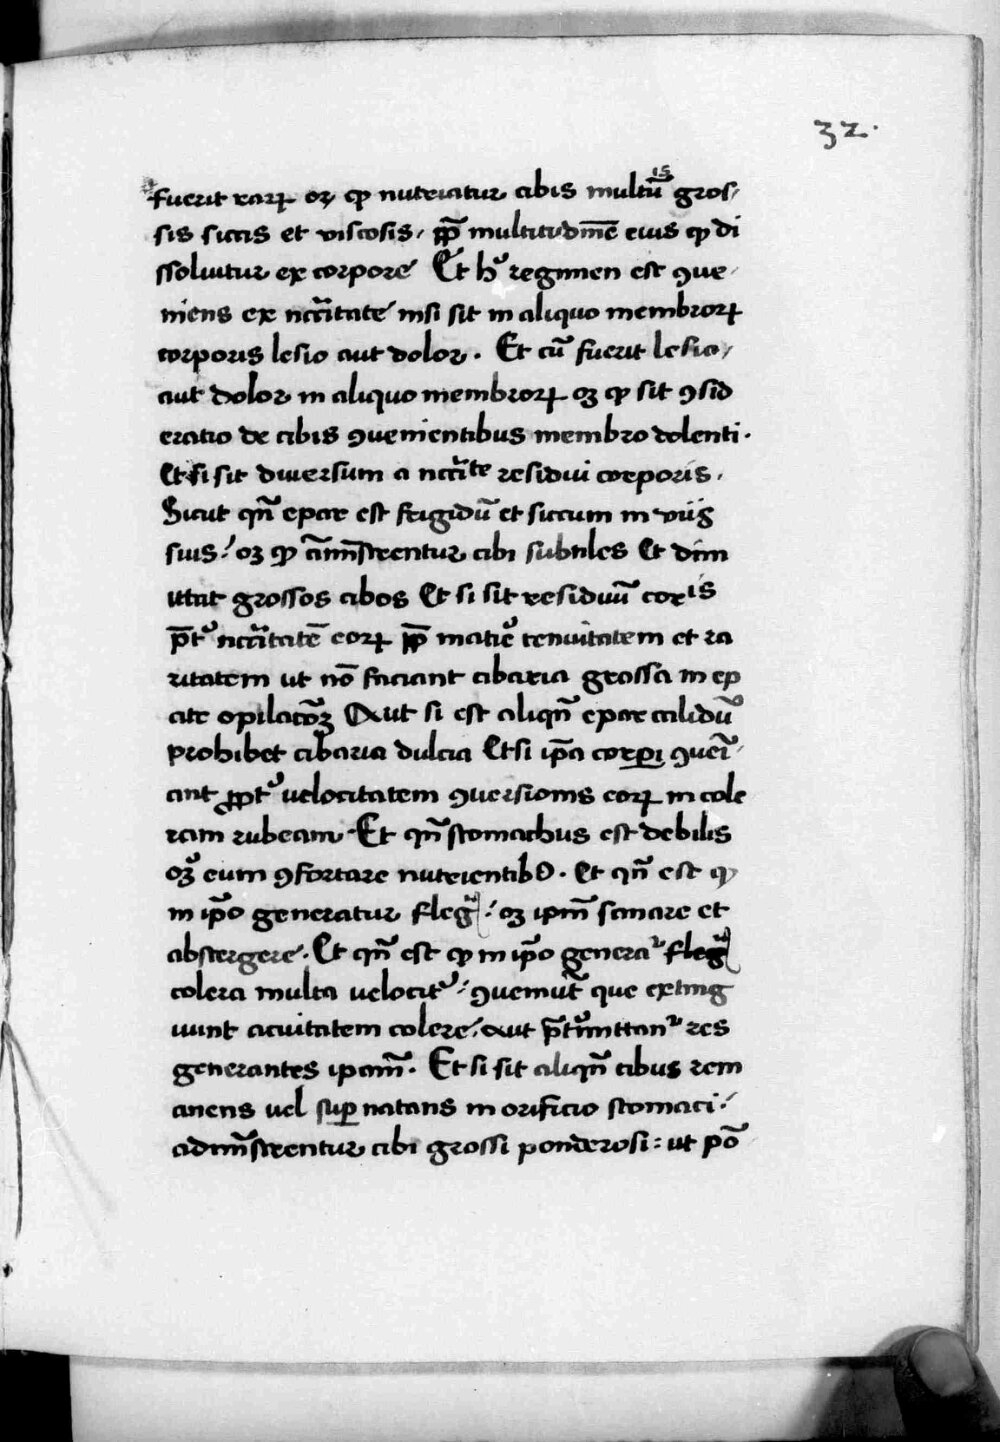 32.
fuerit rarꝝ oꝫ ꝙ nutriatur cibis multũis gros,
sis siccis et viscosis, ꝓp̃ multitudinẽ eius ꝙ di
ssoluitur ex corpore Et hꝰ regimen est ꝯue,
niens ex nccĩtate nisi sit in aliquo membrorꝝ
corporis lesio aut dolor. Et cũ fuerit lesio,
aut dolor in aliquo membrorꝝ oꝫ ꝙ sit ꝯsid
eratio de cibis ꝯuenientibus membro dolenti.
Et si sit diuersum a nccĩte residui corporis.
Sicut qñ epar est frigidũ et siccum in
suis: oꝫ ꝙ am̃instrentur cibi subtiles Et dim
ittat grossos cibos Et si sit residuũ coris
p̃tꝰ nccĩtatẽ eorꝝ ꝓp̃ tenuitatem et ra
ritatem ut nõ faciant cibaria grossa in ep
ate opilatõꝫ Aut si est aliqñ epar calidũ
prohibet cibaria dulcia Et si ip̃a corꝑi ꝯueĩ,
ant ꝓptꝰ velocitatem ꝯuersionis eorꝝ in cole
ram rubeam Et qñ stomachus est debilis
oꝫ eum ꝯfortare nutrientibꝰ. Et qñ est ꝙ
in ip̃o generatur flegᵃ: oꝫ ipm̃ sanare et
abstergere. Et qñ est ꝙ in ip̃o generaᵗ flegᵃ
colera multa velocitꝰ: ꝯuemũt que exting
uunt acuitatem colere, aut p̃tꝰmittanᵗ res
generantes ipam̃. Et si sit aliqñ cibus rem
anens vel suꝑnatans in orificio stomaci:
admĩnstrentur cibi grossi ponderosi: ut põ